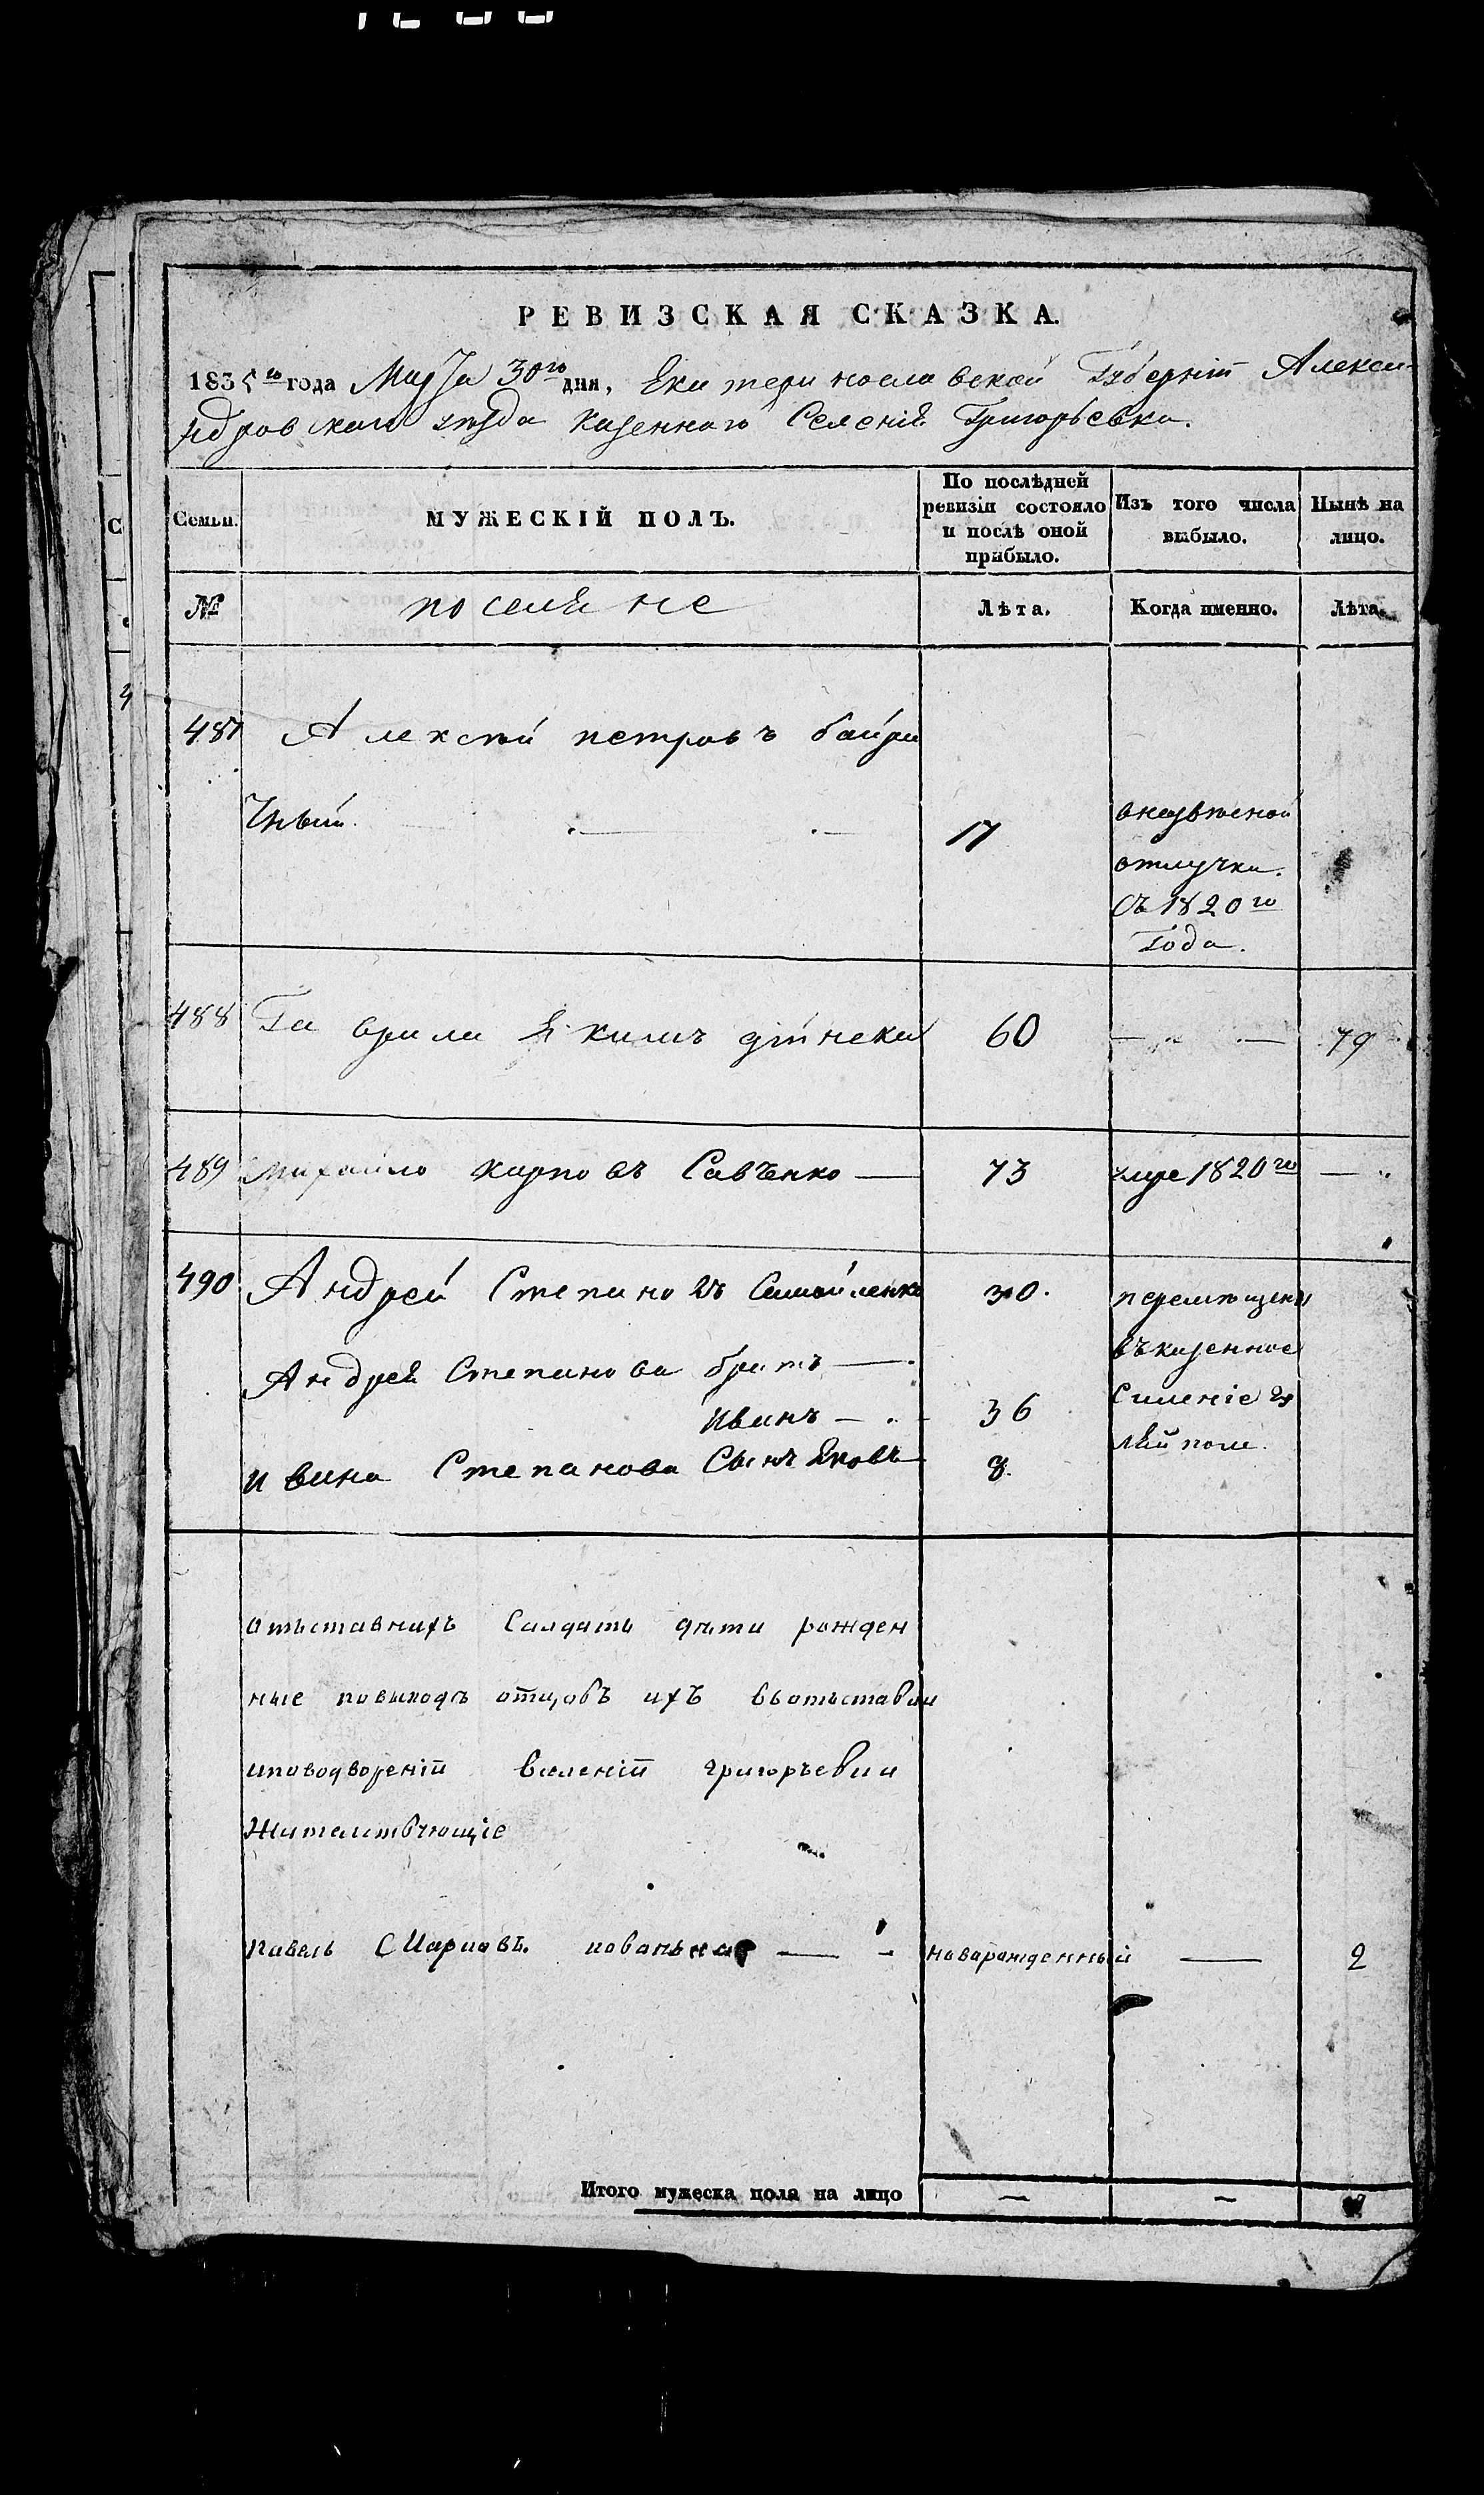 РЕВИЗСКАЯ СКАЗКА.
1835го года Марта 30го дня, Екатеринославской Губерніи Алекса-
ндровскаго уезда казеннаго Селенія Григорьевка.
Семьи. МУЖЕСКІЙ ПОЛЪ. По послѣдней ревизіи состояло и послѣ оной прибыло. Изъ того числа выбыло. Нынѣ на лицо.
№ поселяне Лѣта. Когда именно. Лѣта.
487 Алексѣй петровъ байра
чный. 17 отлучки.
съ 1820го
года.
488 Гаврила Якимъ 60 79
489 Михайло карповъ Савченко 73 умре 1820го
490 Андрей Степановъ Самойленко 30. перемѣщены
Андрея Степанова братъ въ казенное
Иванъ 36 Селеніе
ивана Степанова Сынъ Яковъ 8. поле.
отъставныхъ Салдатъ дѣти рожден
ные повыходѣ отцовъ ихъ въотъставки
иповодвореніи вселеніи григоръевки
Жителствующіе
павелъ новарожденный 2
Итого мужеска пола на лицо